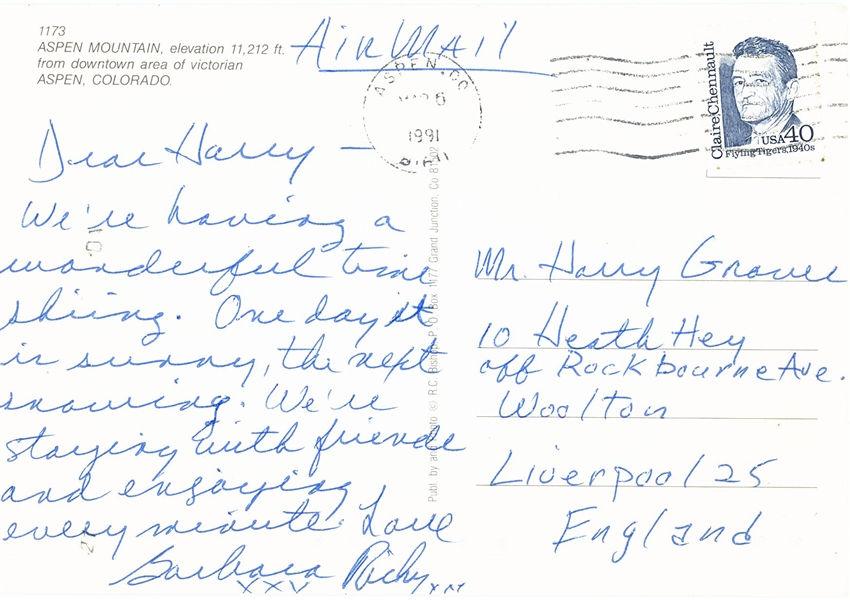 1173
ASPEN MOUNTAIN, elevation 11,212 ft.
from downtown area of victorian
ASPEN, COLORADO.
AIR MAIL
ASPEN, CO
1991
Claire Chennault
USA 40
Flying Tigers, 1940s
Dear Harry —
We're having a
wonderful time
skiing. One day it
is sunny, the next
snowing. We're
staying with friends
and enjoying
every minute. Love
Barbara
XXX
Mr. Harry
10 Heath Hey
off Rockbourne Ave.
Woolton
Liverpool 25
England
Publ. by and photo © R.C. P.O. Box 1177 Grand Junction, Co